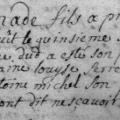 nade fils a p
uit le quinsieme
e, dud a esté son
ame louyse serre
toine michel son
ont dit ne scavoir